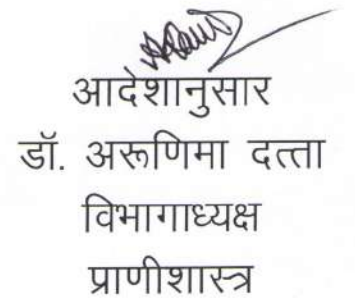 आदेशानुसार
डॉ. अरूणिमा दत्ता
विभागाध्यक्ष
प्राणीशास्त्र